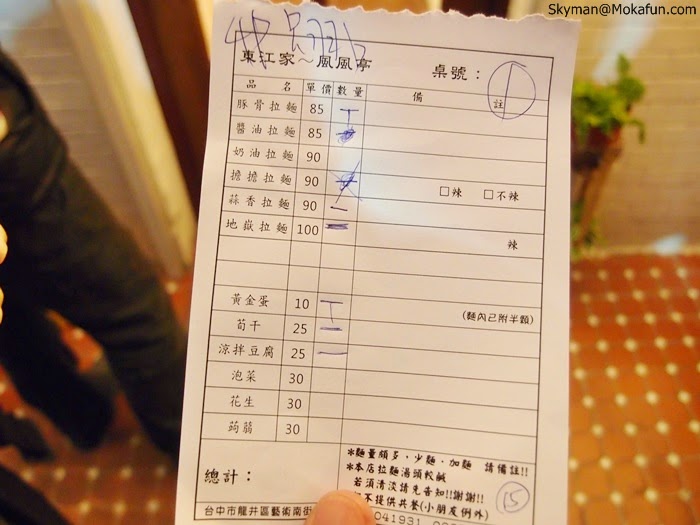 Skyman@Mokafun.com
東江家～風風亭 桌號：
品名 單價 數量 備註
豚骨拉麵 85 丅
醬油拉麵 85
奶油拉麵 90
擔擔拉麵 90 □辣 □不辣
蒜香拉麵 90 一
地獄拉麵 100 辣
黃金蛋 10 丅 (麵內已附半顆)
筍干 25 一
涼拌豆腐 25 一
泡菜 30
花生 30
蒟蒻 30
總計：
*麵量頗多，少麵、加麵 請備註!!
*本店拉麵湯頭較鹹
若須清淡請先告知!!謝謝!!
不提供共餐(小朋友例外)
15
台中市龍井區藝術南街
041931